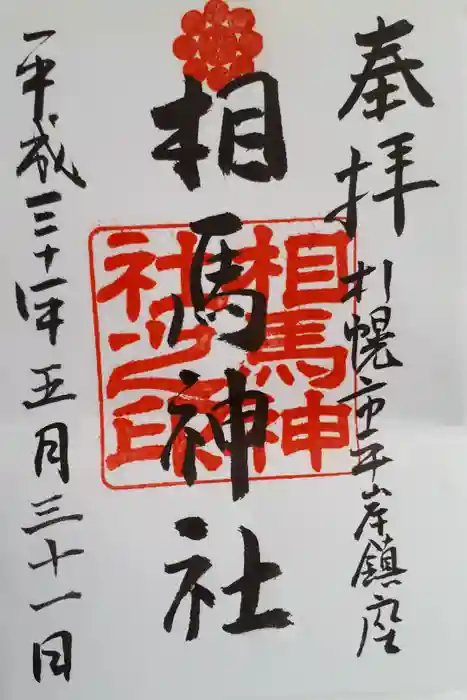 奉拝
札幌市平岸鎮座
相馬神社
相馬神
社之印
平成三十年五月三十一日